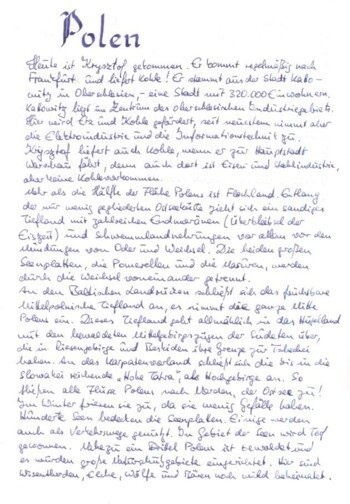 Polen
Heute ist Krysztof gekommen. Er kommt regelmäßig nach
Frankfurt und liefert Kohle! Er stammt aus der Stadt Kato-
witz in Oberschlesien, - eine Stadt mit 320.000 Einwohnern.
Katowitz liegt im Zentrum des oberschlesischen Industriegebiets.
Hier wird Erz und Kohle gefördert, seit neuestem nimmt aber
die Elektroindustrie und die Informationstechnik zu.
Krysztof liefert auch Kohle, wenn er zur Hauptstadt
Warschau fährt, denn auch dort ist Eisen und Stahlindustrie,
aber keine Kohlevorkommen.
Mehr als die Hälfte der Fläche Polens ist Flachland. Entlang
der nur wenig gegliederten Ostseeküste zieht sich ein sandiges
Tiefland mit zahlreichen Endmoränen (Überbleibsel der
Eiszeit) und Schwemmlandnehrungen vor allem vor den
Mündungen von Oder und Weichsel. Die beiden großen
Seenplatten, die Pomerellen und die Masuren, werden
durch die Weichsel voneinander getrennt.
An den Baltischen Landrücken schließt sich das fruchtbare
Mittelpolnische Tiefland an, es nimmt die ganze Mitte
Polens ein. Dieses Tiefland geht allmählich in das Hügelland
mit den bewaldeten Mittelgebirgszügen der Sudeten über,
die in Riesengebirge und Beskiden ihre Grenze zur Tschechei
haben. An das Karpatenvorland schließt sich die bis in die
Slowakei reichende "Hohe Tatra", als Hochgebirge an. So
fließen alle Flüsse Polens nach Norden, der Ostsee zu!
Im Winter frieren sie zu, da sie wenig Gefälle haben.
Hunderte Seen bedecken die Seenplatten. Einige werden
auch als Verkehrswege genutzt. Im Gebiet der Seen wird Torf
gewonnen. Nahezu ein Drittel Polens ist bewaldet und
es wurden große Naturschutzgebiete eingerichtet. Hier sind
Wisentherden, Elche, Wölfe und Bären noch wild beheimatet.